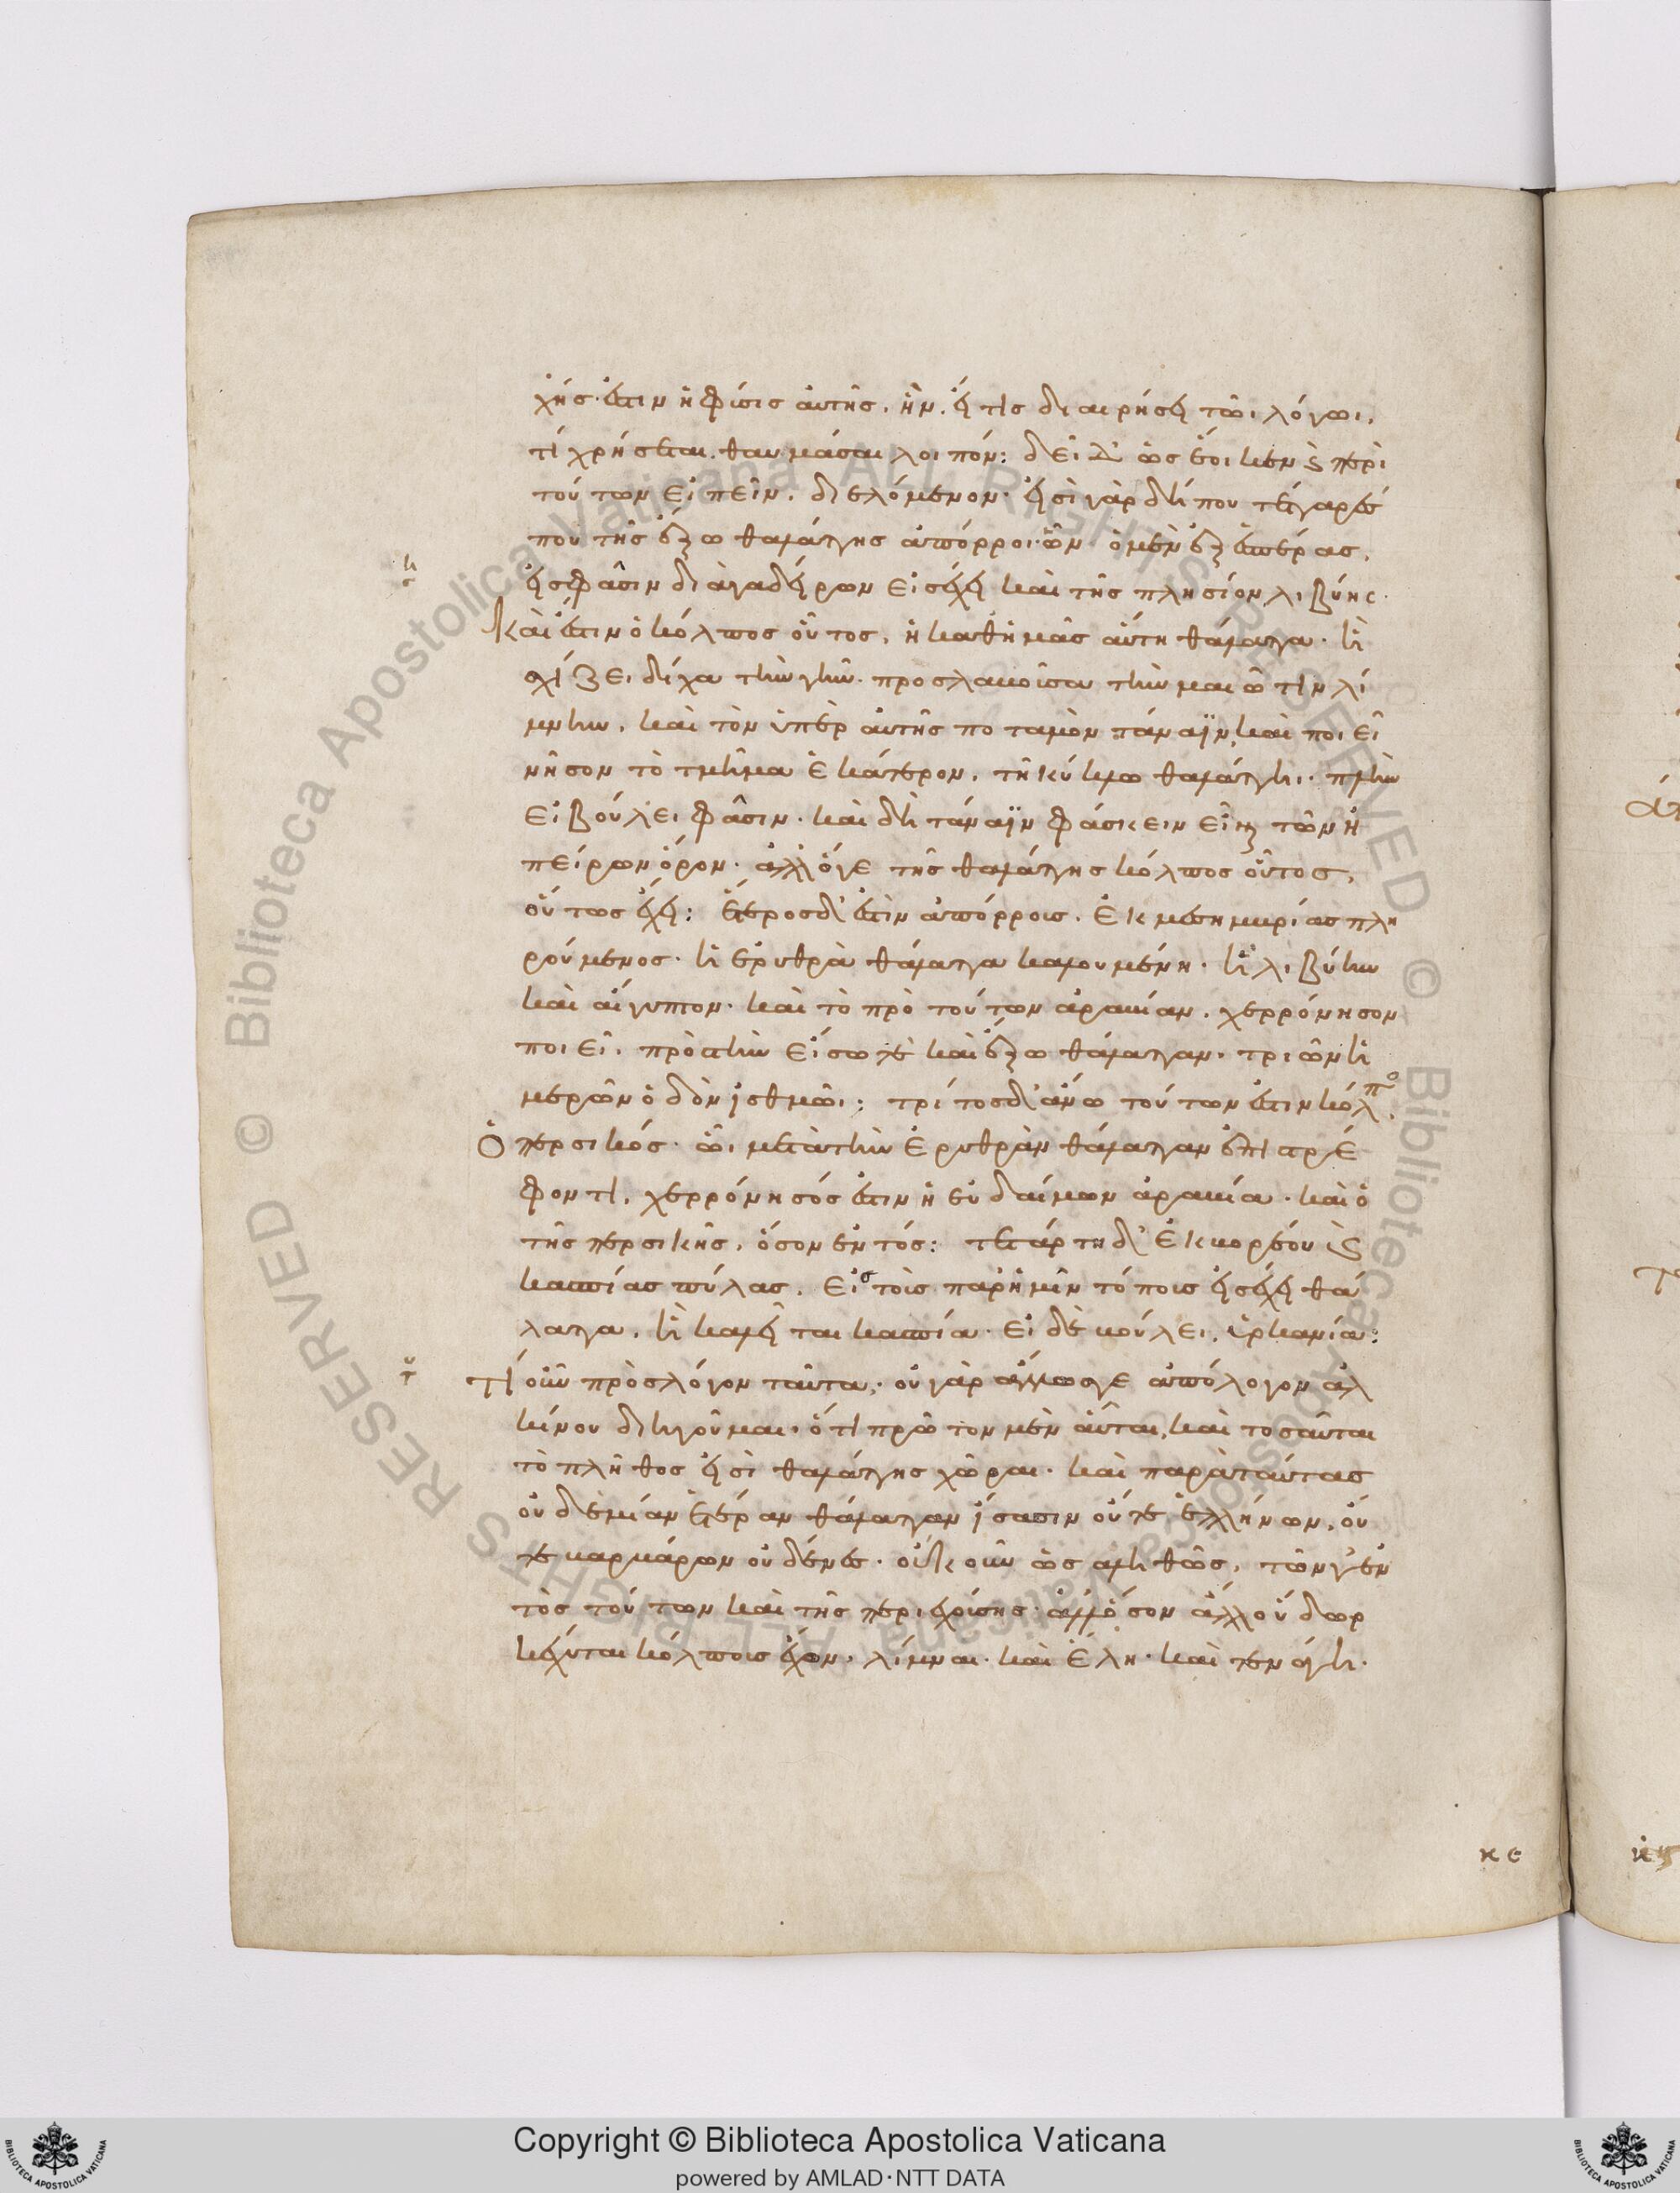 χῆς· ἐστιν ἡ φύσις αὐτῆς. ἣν, εἴ τις διαιρήσει τῶι λόγωι,
τί χρήσεται. θαυμάσαι λοιπόν: δεῖ δ' ὡς ἔοικεν καὶ περὶ
τούτων εἰπεῖν. διελόμενον· εἰσὶ γὰρ δήπου τέτταρές
που τῆς ἔξω θαλάττης ἀπόρροι· ὧν ὁ μὲν ἐξ ἑσπέρας,
εἴς φασιν διὰ γαδείρων εἰσέχει καὶ τῆς πλησίον λιβύης·
Καὶ ἔστιν ὁ κόλπος οὗτος, ἡ καθ' ἡμᾶς αὕτη θάλαττα· ἣ
σχίζει δίχα τὴν γῆν· προσλαβοῦσα τὴν μαιῶτιν λί
μνην, καὶ τὸν ὑπὲρ αὐτῆς ποταμὸν τάναϊν, καὶ ποιεῖ
νῆσον τὸ τμῆμα ἑκάτερον, τῇ κύκλω θαλάττηι· πλὴν
εἰ βούλει φᾶσιν· καὶ δὴ τάναϊν φάσκειν εἶναι τῶν ἠ
πείρων ὅρον· ἀλλ' ὅγε τῆς θαλάττης κόλπος οὗτος,
οὕτως ἔχει: ἕτερος δ' ἐστὶν ἀπόρρους, ἐκ μεσημβρίας πλη
ρούμενος· ἡ ἐρυθρὰ θάλαττα καλουμένη· ἣ λιβύην
καὶ αἴγυπτον· καὶ τὸ πρὸ τούτων ἀραβίαν, χερρόνησον
ποιεῖ, πρὸς τὴν εἴσω τε καὶ ἔξω θάλατταν· τριῶν ἡ
μερῶν ὁδὸν ἰσθμῶι: τρίτος δ' ἄνω τούτων ἐστιν κόλπο
Ὁ περσικός· ὧι μετὰ τὴν ἐρυθρὰν θάλατταν ἐπιστρέ
φοντι, χερρόνησός ἐστιν ἡ εὐδαίμων ἀραβία· καὶ ὁ
τῆς περσικῆς, ὅσον ἐντός: τετάρτη δ' ἐκ βορέου καὶ
κασπίας πύλας, εἰς τοῖς παρ' ἡμῖν τόποις εἰσέχει θά
λαττα, ἣ καλεῖται κασπία· εἰ δὲ βούλει, ὑρκανία:
Τί οὖν πρὸς λόγον ταῦτα· οὐ γὰρ ἄλλως γε ἀπόλογον ἀλ
κίνου διηγοῦμαι· ὅτι πρῶτον μὲν αὗται, καὶ τοσαῦται
τὸ πλῆθος εἰσὶ θαλάττης χῶραι· καὶ παρὰ ταύτας
οὐδεμίαν ἑτέραν θάλατταν ἴσασιν οὔτε ἑλλήνων, οὔ
τε βαρβάρων οὐδένες· οὔκουν ὡς ἀληθῶς, τῶν γ' ἐν
τὸς τούτων καὶ τῆς περιεχούσης· ἀλλ' ὅσον ἄλλο ὕδωρ
κέχυται κόλποις ἔχον, λίμναι· καὶ ἕλη· καὶ τενάγη·
κε